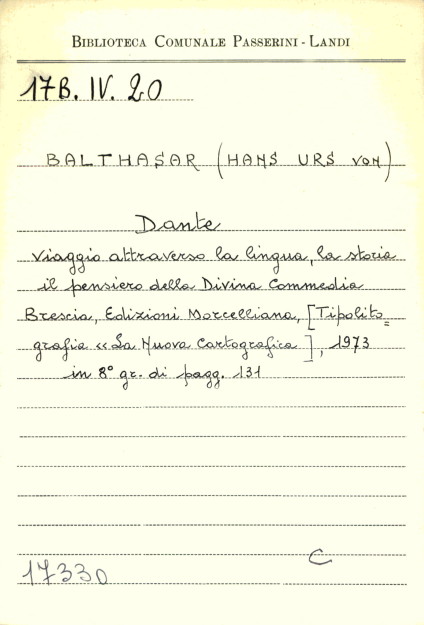 BIBLIOTECA COMUNALE PASSERINI - LANDI
17B. IV. 20
BALTHASAR (HANS URS von)
Dante
Viaggio attraverso la lingua, la storia
il pensiero della Divina Commedia
Brescia, Edizioni Morcelliana, [Tipolito=
grafia «La Nuova Cartografica], 1973
in 8° gr. di pagg. 131
C
17330